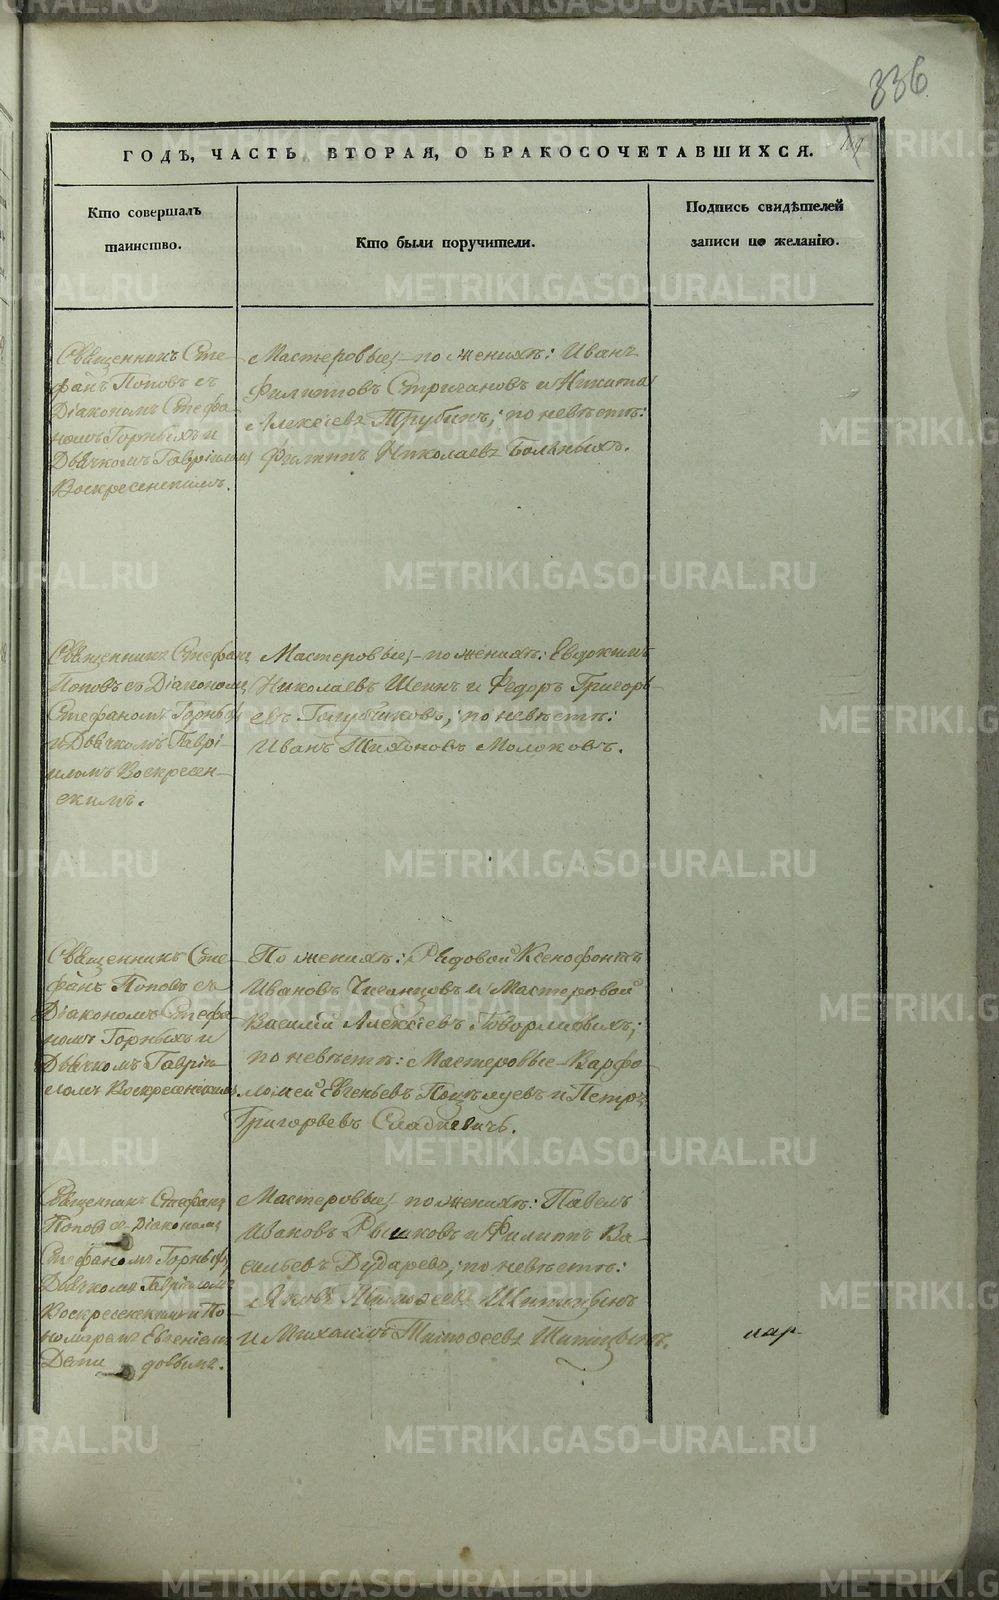 336
ГОДѢ, ЧАСТЬ ВТОРАЯ, О БРАКОСОЧЕТАВШИХСЯ.
Кто совершалъ
таинство.
Кто были поручители.
Подпись свидѣтелей
записи по желанію.
Священникъ Сте-
фанъ Поповъ съ
Діакономъ Стефа-
номъ Горныхъ и
Дьячкомъ Гавріиломъ
Воскресенскимъ.
Мастеровые, по женихѣ: Иванъ
Филипповъ Стричановъ и Никита
Алексѣевъ Трубинъ; по невѣстѣ:
Филиппъ Николаевъ Больныхъ.
Священникъ Стефанъ
Поповъ съ Діакономъ
Стефаномъ Горныхъ
и Дьячкомъ Гаврі-
иломъ Воскресен-
скимъ.
Мастеровые, по женихѣ: Евдокимъ
Николаевъ Шеинъ и Федоръ Григорь-
евъ Голубчиковъ; по невѣстѣ:
Иванъ Молоковъ.
Священникъ Сте-
фанъ Поповъ съ
Діакономъ Стефа-
номъ Горныхъ и
Дьячкомъ Гаврiи-
ломъ Воскресенскимъ
По женихѣ: Рядовой Ксенофонтъ
Ивановъ и Мастеровой
Василій Алексѣевъ
по невѣстѣ: Мастеровые Варфо-
ломей Евгеньевъ Поцѣлуевъ и Петръ
Григорьевъ
Священникъ Стефанъ
Поповъ съ Діакономъ
Стефаномъ Горныхъ,
Дьячкомъ Гавріиломъ
Воскресенскимъ и По-
номаремъ Евгеніемъ
Деми довымъ.
Мастеровые, по женихѣ: Павелъ
Ивановъ и Филиппъ Ва-
сильевъ Дударевъ; по невѣстѣ:
Яковъ Тимофеевъ
и Михаилъ Тимофеевъ
METRIKI.GASO-URAL.RU